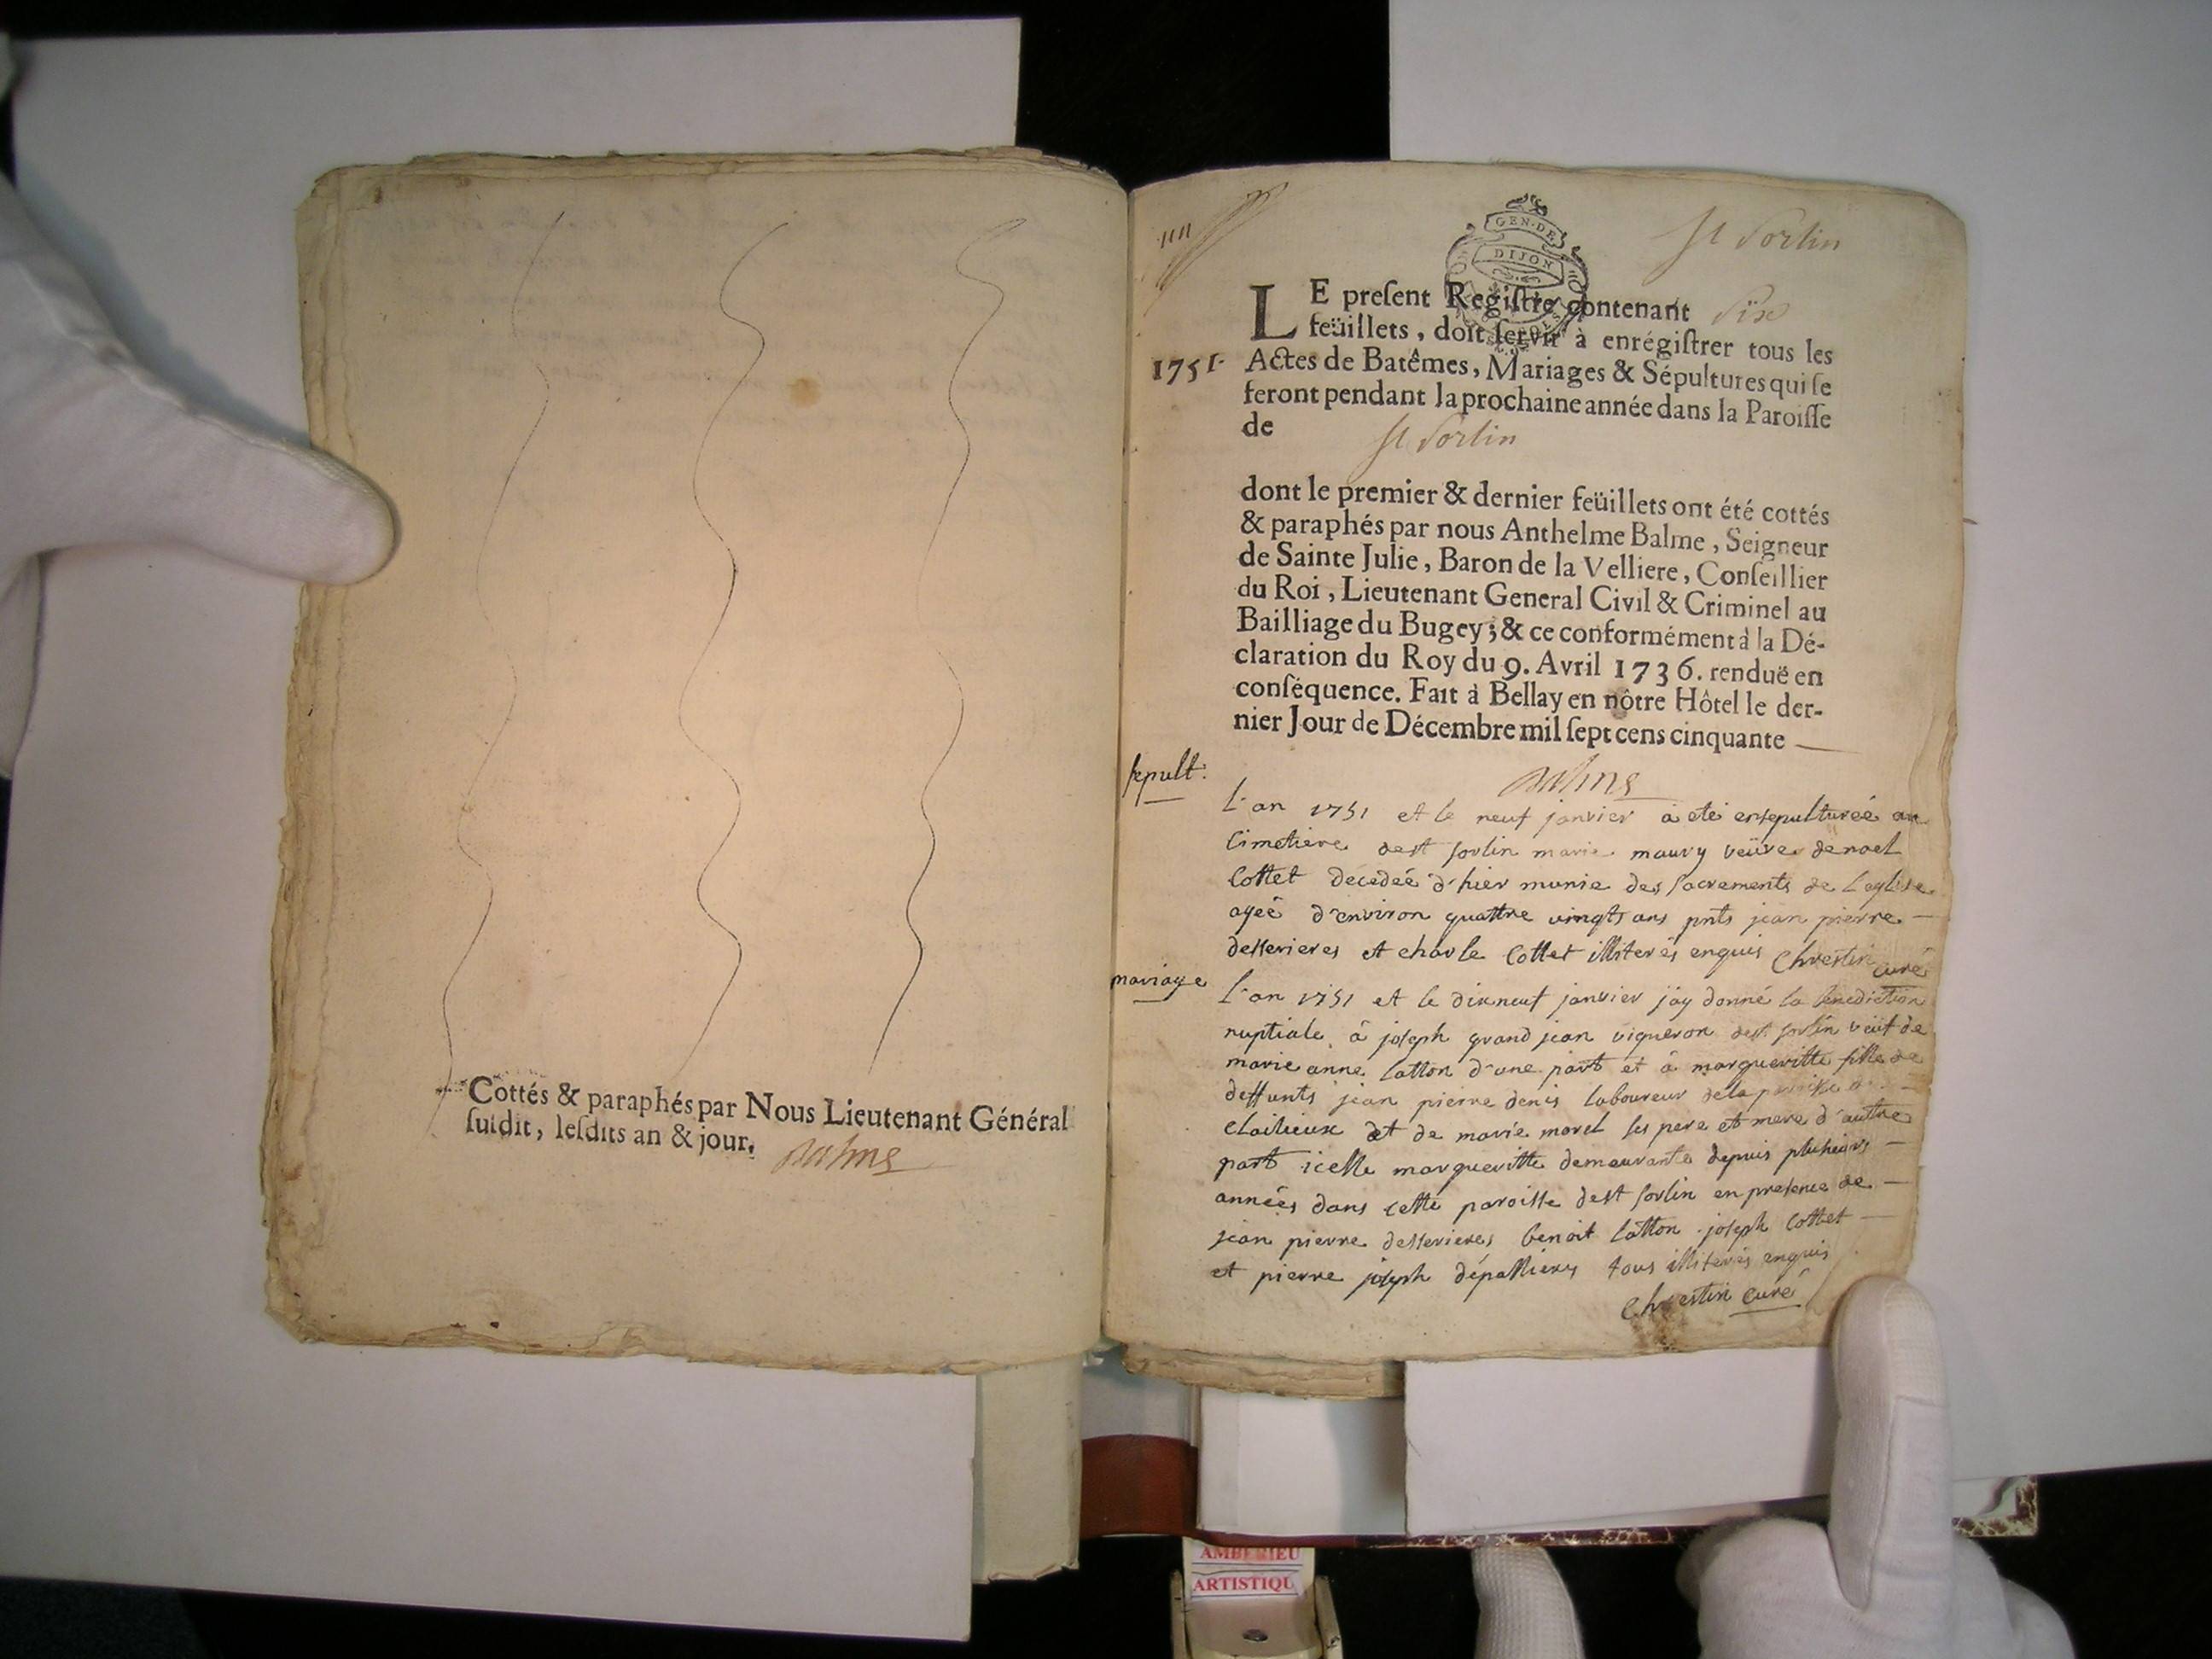 Cottés & paraphés par Nous Lieutenant Général
susdit, lesdits an & jour.
Balme
st Sorlin
GEN·DE
DIJON
LE present Registre contenant six
feüillets, doit servir à enrégistrer tous les
1751. Actes de Batêmes, Mariages & Sépultures qui se
feront pendant la prochaine année dans la Paroisse
de st Sorlin
dont le premier & dernier feüillets ont été cottés
& paraphés par nous Anthelme Balme, Seigneur
de Sainte Julie, Baron de la Velliere, Conseillier
du Roi, Lieutenant General Civil & Criminel au
Bailliage du Bugey; & ce conformément à la Dé-
claration du Roy du 9. Avril 1736. renduë en
conséquence. Fait à Bellay en nôtre Hôtel le der-
nier Jour de Décembre mil sept cens cinquante
Balme
sepult.
L'an 1751 et le neuf janvier a eté ensepulturéé au
Cimetiere de st sorlin marie maury veüve de noel
Cottet decedéé d'hier munie des sacrements de l'eglise
ageé d'environ quattre vingts ans pnts jean pierre
desserieres et charle Cottet illiterés enquis Chrestin curé
mariage
L'an 1751 et le dixneuf janvier j'ay donné la benediction
nuptiale à joseph grand jean vigneron de st sorlin veuf de
marie anne Catton d'une part et à margueritte fille de
deffunts jean pierre denis laboureur de la paroisse
et de marie morel ses pere et mere d'autre
part icelle margueritte demeurante depuis plusieurs
annéés dans cette paroisse de st sorlin en presence de
jean pierre desserieres benoit Catton joseph Cottet
et pierre joseph tous illiterés enquis
Chrestin curé
AMBERIEU
ARTISTIQU